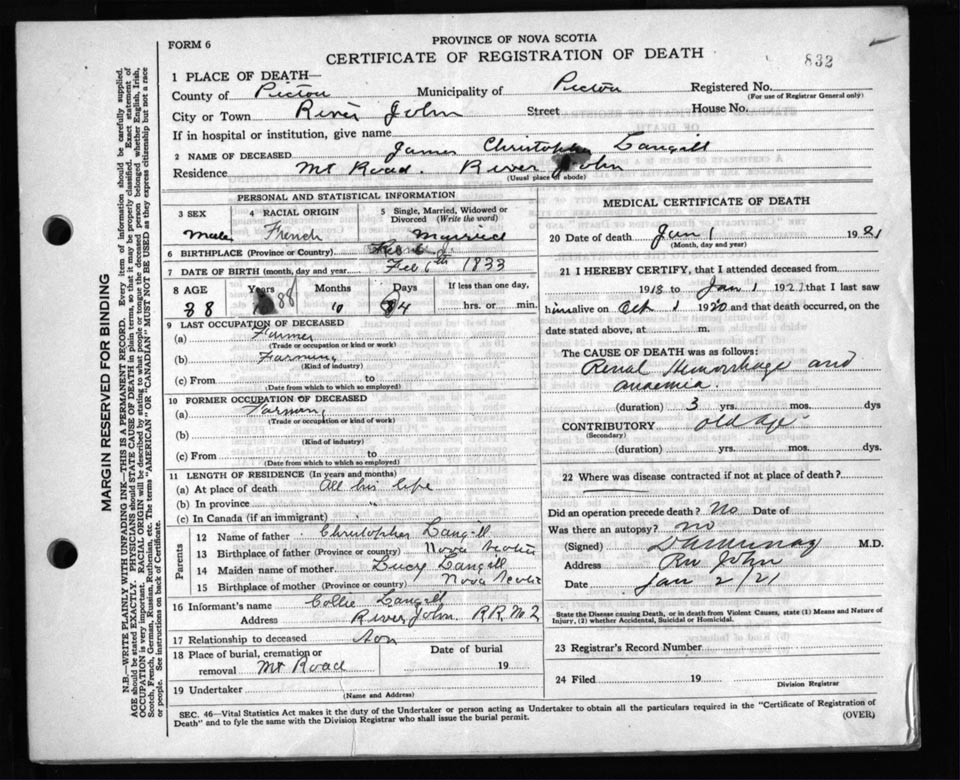 PROVINCE OF NOVA SCOTIA
FORM 6
CERTIFICATE OF REGISTRATION OF DEATH
832
1 PLACE OF DEATH—
County of Pictou Municipality of Pictou Registered No.
(For use of Registrar General only)
City or Town River John Street House No.
If in hospital or institution, give name
2 NAME OF DECEASED James Christopher Langill
Residence Mt Road. River John
(Usual place of abode)
PERSONAL AND STATISTICAL INFORMATION
3 SEX 4 RACIAL ORIGIN 5 Single, Married, Widowed or Divorced (Write the word)
Male French Married
6 BIRTHPLACE (Province or Country)
7 DATE OF BIRTH (month, day and year) Feb 6th 1833
8 AGE Years Months Days If less than one day,
88 88 10 24 hrs. or min.
9 LAST OCCUPATION OF DECEASED
(a) Farmer
(Trade or occupation or kind or work)
(b) Farming
(Kind of industry)
(c) From to
(Date from which to which so employed)
10 FORMER OCCUPATION OF DECEASED
(a) Farming
(Trade or occupation or kind of work)
(b)
(Kind of industry)
(c) From to
(Date from which to which so employed)
11 LENGTH OF RESIDENCE (In years and months)
(a) At place of death All his life
(b) In province "
(c) In Canada (if an immigrant)
Parents
12 Name of father Christopher Langill
13 Birthplace of father (Province or country) Nova Scotia
14 Maiden name of mother Lucy Langill
15 Birthplace of mother (Province or country) Nova Scotia
16 Informant's name Collie Langill
Address River John R.R. No 2
17 Relationship to deceased Son
18 Place of burial, cremation or removal Mt Road Date of burial 19
19 Undertaker
(Name and Address)
MEDICAL CERTIFICATE OF DEATH
20 Date of death Jan 1 1921
(Month, day and year)
21 I HEREBY CERTIFY, that I attended deceased from
1918 to Jan 1 1921 that I last saw
him alive on Oct 1 1920 and that death occurred, on the
date stated above, at m.
The CAUSE OF DEATH was as follows:
Renal Hemorrhage and
anaemia.
(duration) 3 yrs. mos. dys
CONTRIBUTORY old age
(Secondary)
(duration) yrs. mos. dys.
22 Where was disease contracted if not at place of death?
Did an operation precede death? No Date of
Was there an autopsy? No
(Signed) M.D.
Address Riv John
Date Jan 2/21
State the Disease causing Death, or in death from Violent Causes, state (1) Means and Nature of
Injury, (2) whether Accidental, Suicidal or Homicidal.
23 Registrar's Record Number
24 Filed 19
Division Registrar
SEC. 46—Vital Statistics Act makes it the duty of the Undertaker or person acting as Undertaker to obtain all the particulars required in the "Certificate of Registration of
Death" and to fyle the same with the Division Registrar who shall issue the burial permit. (OVER)
MARGIN RESERVED FOR BINDING
N.B.—WRITE PLAINLY WITH UNFADING INK—THIS IS A PERMANENT RECORD. Every item of information should be carefully supplied.
AGE should be stated EXACTLY. PHYSICIANS should STATE CAUSE OF DEATH in plain terms, so that it may be properly classified. Exact statement of
OCCUPATION is very important. RACIAL ORIGIN will be described by stating to what people or tongue the deceased person belonged whether English, Irish,
Scotch, French, German, Russian, Ruthenian, etc. The terms "AMERICAN" OR "CANADIAN" MUST NOT BE USED as they express citizenship but not a race
or people. See instructions on back of Certificate.